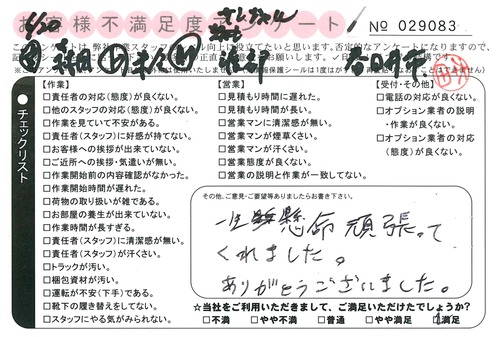 お客様不満足度アンケート
No 029083
【作業】
□責任者の対応(態度)が良くない。
□他のスタッフの対応(態度)が良くない。
□作業を見ていて不安がある。
□責任者(スタッフ)に好感が持てない。
□お客様への挨拶が出来ていない。
□ご近所への挨拶・気遣いが無い。
□作業開始前の内容確認がなかった。
□作業開始時間が遅れた。
□荷物の取り扱いが雑である。
□お部屋の養生が出来ていない。
□作業時間が長すぎる。
□責任者(スタッフ)に清潔感が無い。
□責任者(スタッフ)が汗くさい。
□トラックが汚い。
□梱包資材が汚い。
□運転が不安(下手)である。
□靴下の履き替えをしてない。
□スタッフにやる気がみられない。
【営業】
□見積もり時間に遅れた。
□見積もり時間が長い。
□営業マンに清潔感が無い。
□営業マンが煙草くさい。
□営業マンが汗くさい。
□営業態度が良くない。
□営業の説明と作業が一致してない。
【受付・その他】
□電話の対応が良くない。
□オプション業者の説明
・作業が良くない。
□オプション業者の対応
(態度)が良くない。
●チェックリスト
その他、ご意見・ご要望等ありましたらお書き下さい。
一生懸命頑張って
くれました。
ありがとうございました。
☆当社をご利用いただきまして、ご満足いただけたでしょうか?
□不満 □やや不満 □普通 □やや満足 □満足